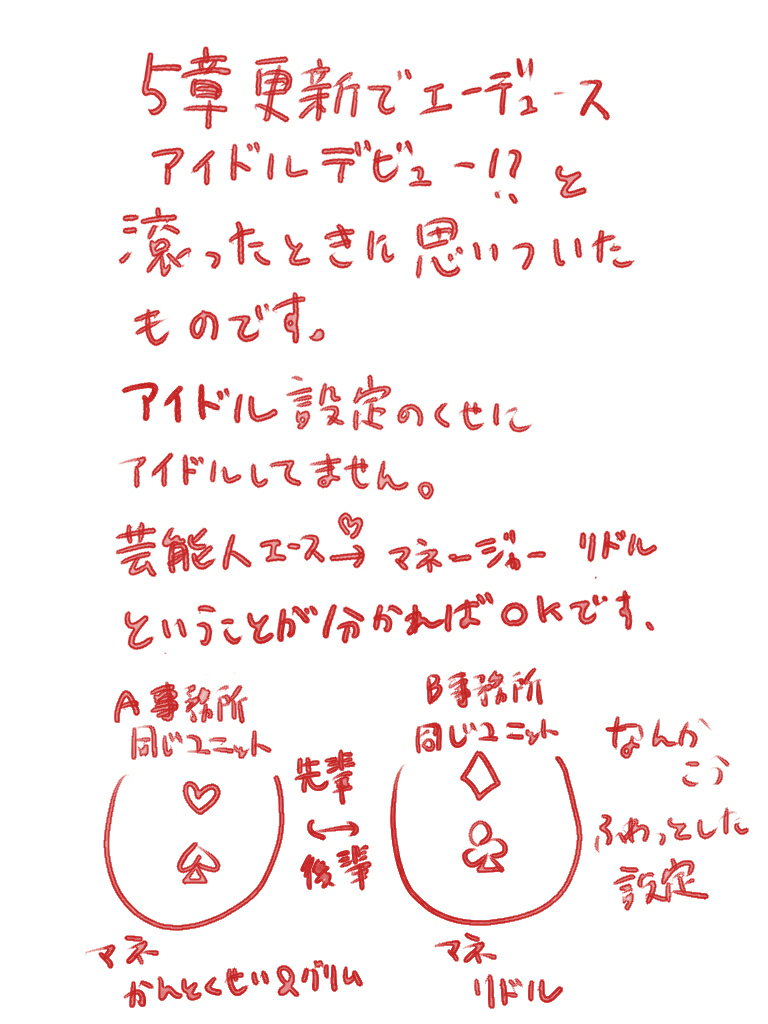 5章更新でエーデュース
アイドルデビュー!?と
滾ったときに思いついた
ものです。
アイドル設定のくせに
アイドルしてません。
芸能人エース♡→マネージャーリドル
ということが分かればOKです、
A事務所
同じユニット
♡
♠
マネ
かんとくせい&グリム
先輩
↔
後輩
B事務所
同じユニット
♢
♣
マネ
リドル
なんか
こう
ふわっとした
設定